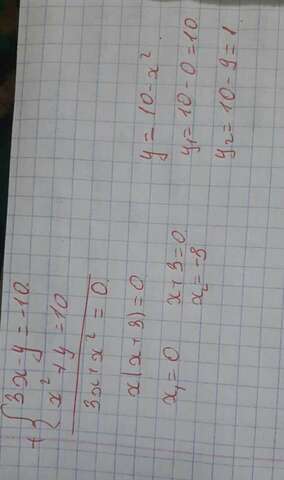 + { 3x - y = -10
x² + y = 10
3x + x² = 0
x(x+3) = 0
x₁ = 0   x+3=0
x₂ = -3
y = 10 - x²
y₁ = 10 - 0 = 10
y₂ = 10 - 9 = 1